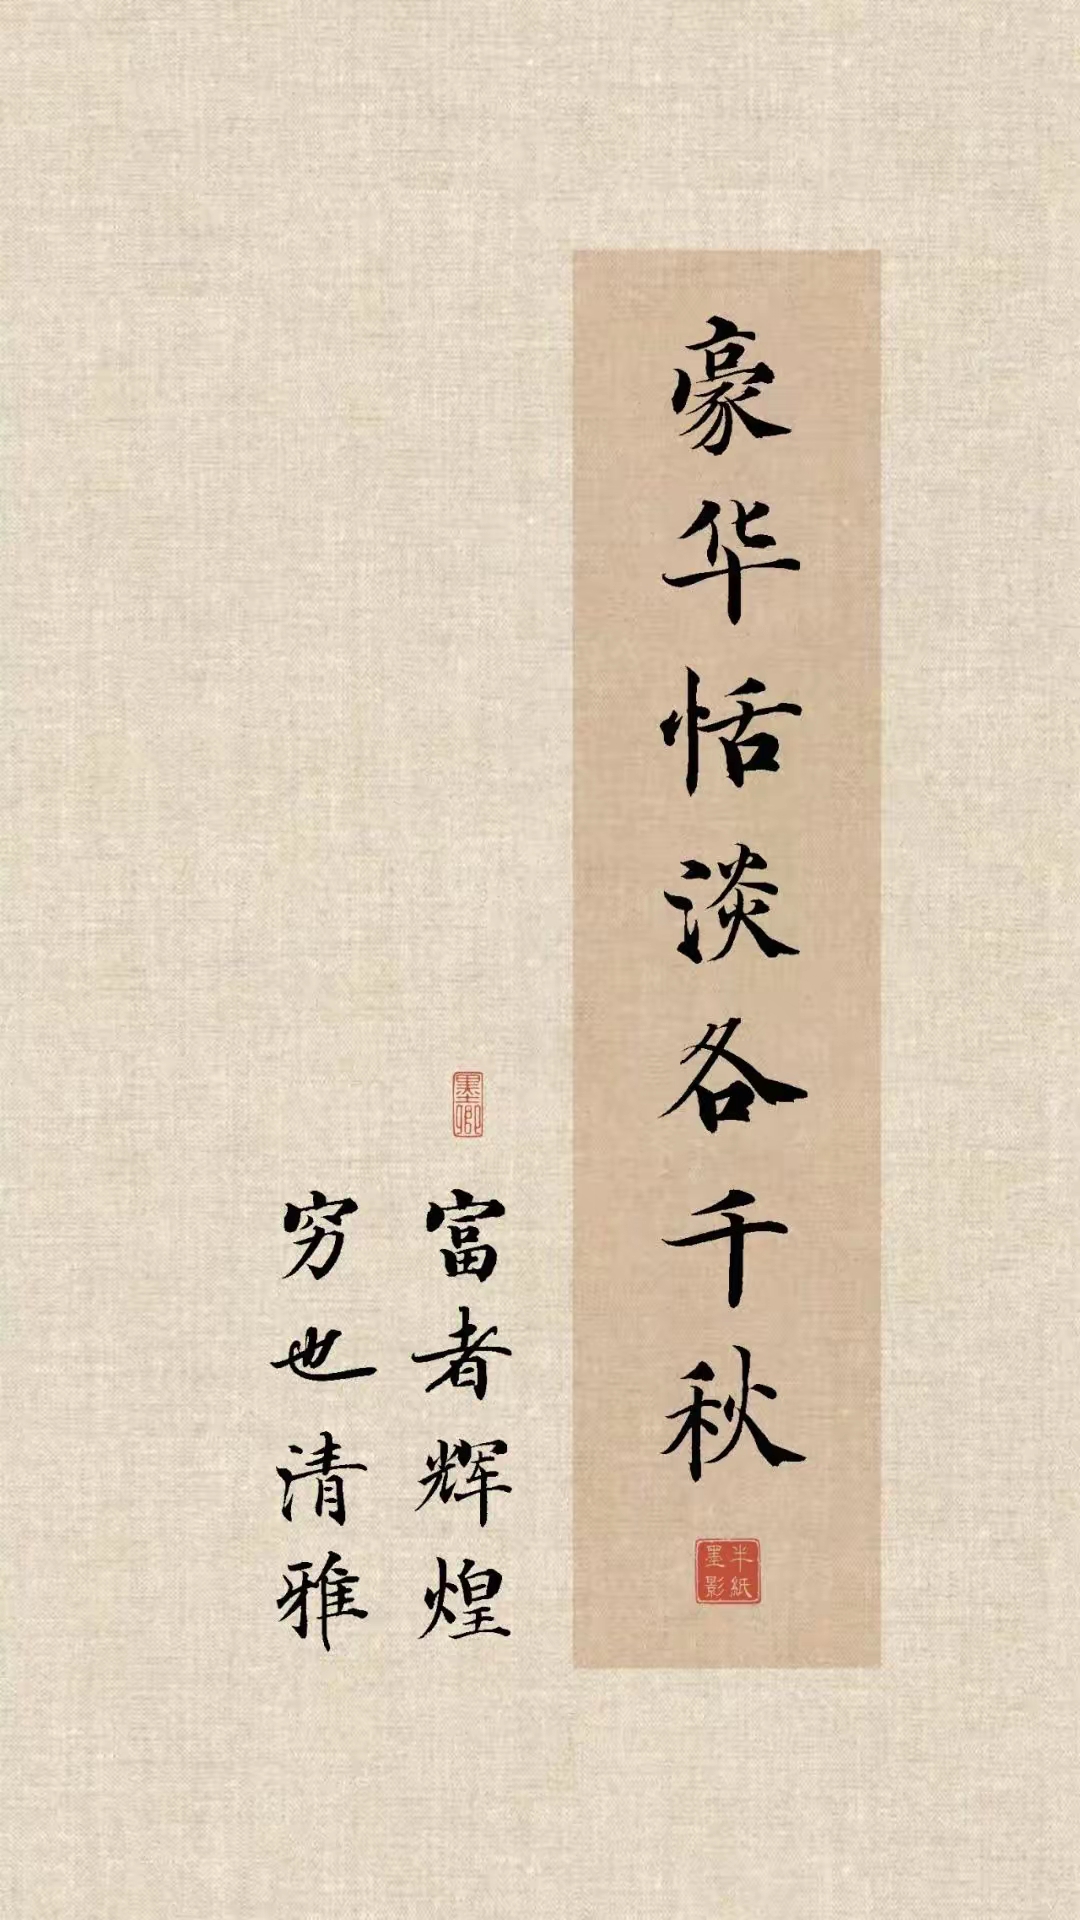 豪华恬淡各千秋
半紙
墨影
墨卿
富者辉煌
穷也清雅